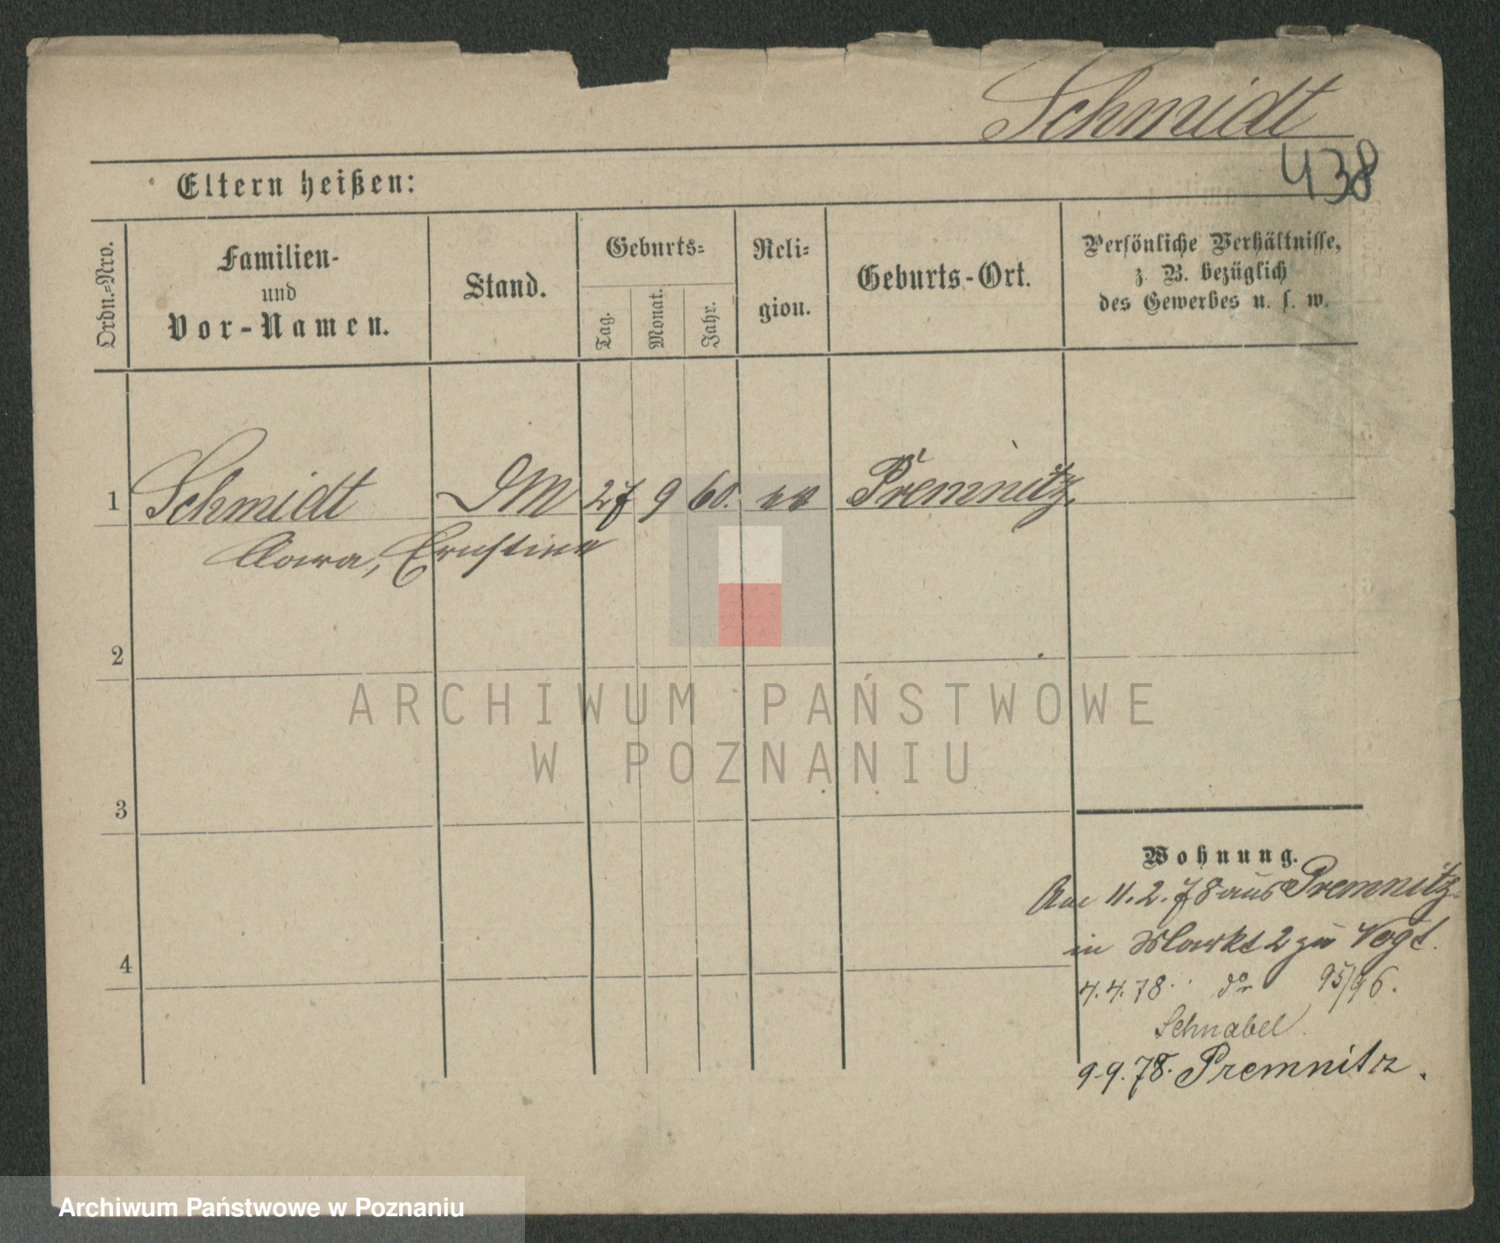 Schmidt
438
Eltern heißen:
Ordn.-Nro.
Familien-
und
Vor-Namen.
Stand.
Geburts-
Tag.
Monat.
Jahr.
Reli-
gion.
Geburts-Ort.
Persönliche Verhältnisse,
z. B. bezüglich
des Gewerbes u. s. w.
1 Schmidt DM 27 9 60. ev Premnitz.
Clara, Ernstine
2
3
4
ARCHIWUM PAŃSTWOWE
W POZNANIU
Wohnung.
11.2.78 aus Premnitz
in Markt 2 zu Vogt.
4.4.78. do 95/96.
Schnabel.
9.9.78. Premnitz.
Archiwum Państwowe w Poznaniu